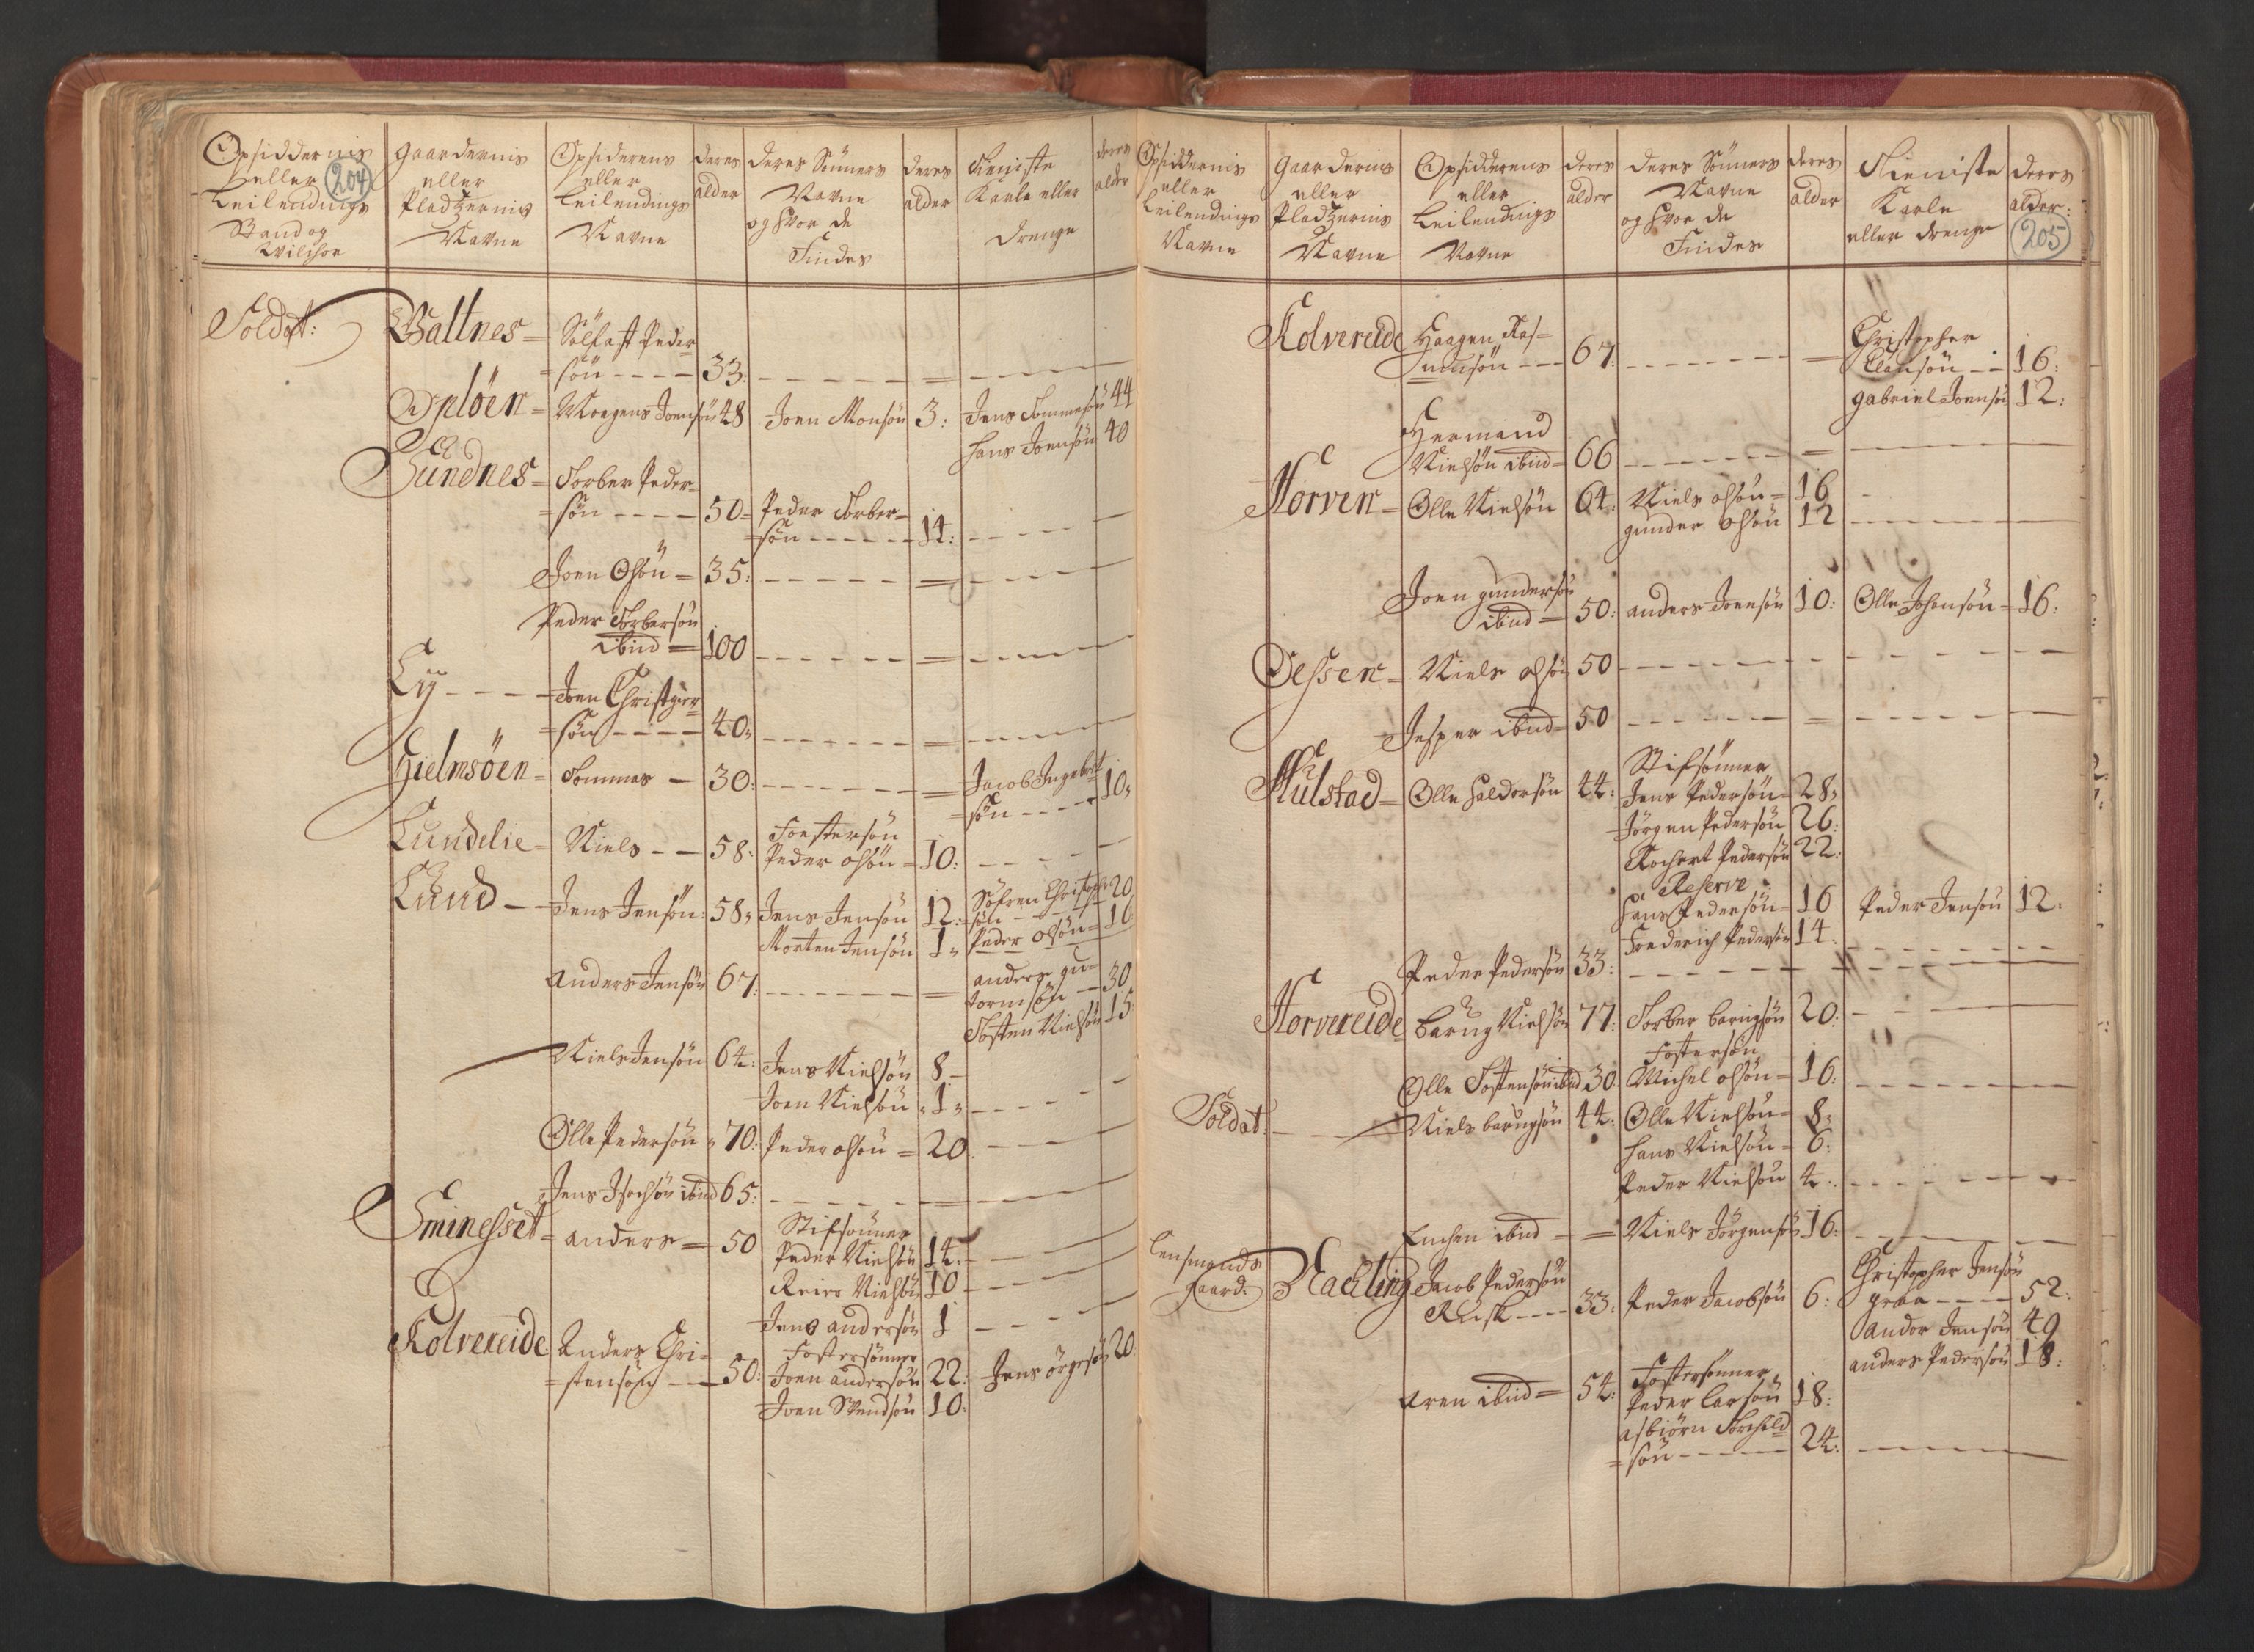 Opsiddernis
eller
Leilendings
Stand og
Vilchor
204
Gaardernis
eller
Pladzernis
Navne
Opsiderens
eller
Leilendings
Navne
deres
alder
deres Sönners
Navne
og hvor de
Findes
deres
alder
Tieniste
Karle eller
drenge
deres
alder
Soldat: Waltnes = Sölfast Peder
= sön - - - - 33: - - - - - - = - - - - -
Oplöen = Mogens Joensön 48 Joen Monsön 3: Jens Tommesön 44
Hans Joensön 40
Sundnes = Torber Peder-
= sön - - - - 50 = Peder Torber-
= sön - - - - - - 14: - - - -
Joen Olsön = 35: - - - - - = - - - -
Peder Torbersön
ibid = 100 - - - - - - = - - - - -
Lÿ - - - - Joen Christopher
= sön - - - - 40: - - - - - - = - - - - -
Gielmsöen = Tommes - 30: - - - - - - = Jacob Ingebret
= sön - - - 10:
Lundelie = Niels - - 58: Fostersön
Peder Olsön = 10: - - - -
Lund - - Jens Jensön: 58: Jens Jensön 12: Söfren Christoph 20
sön - - - -
Morten Jensön 1: Peder Olsön = 16
Anders Jensön 67: - - - - - - = anders gu-
tormsön - 30
Tosten Nielsön 15
Niels Jensön 64: Jens Nielsön 8 -
Joen Nielsön 1: - - - - -
Olle Pedersön 70: Peder Olsön = 20 - - - -
Jens Isachsön ibid 65: - - - - - - - -
Eminesset = anders = 50 Stifsönner
Peder Nielsön 14: - - -
Reier Nielsön 10 - - - -
Jens andersön 1 - - - -
Kolvereide Anders Chri- Fostersönner
= stensön - - 50: Joen andersön 22: Jens örgesön 20
Joen Svendsön 10:
Opsiddernis
eller
Leilendings
Navne
Gaardernis
eller
Pladzernis
Navne
Opsidderens
eller
Leilendings
Navne
deres
alder
deres Sönners
Navne
og hvor de
Findes
deres
alder
Tieniste
Karle
eller drenge
deres
alder:
205
Kolvereide Haagen Ras-
muusön - - - 67: - - - - - - = Christopher
Clausön - - 16:
gabriel Joensön 12:
Hermand
Nielsön ibid = 66 - - - - - - - = - - - - -
Horven = Olle Nielsön 64: Niels olsön = 16 -
gunder olsön 12 - - - - - -
Joen gundersön
ibid = 50: anders Joensön 10: Olle Johansön = 16:
Oelssen = Niels olsön 50 - - - - - - - - - - - - -
Jesper ibid = 50 - - - - - - = - - - - - -
Stifsönner
Hulstad = Olle haldorsön 44: Jens Pedersön = 28:
Jörgen Pedersön 26:
Rochert Pedersön 22:
Reserve
Hans Pedersön = 16 Peder Jensön 12:
Frederich Pedersön 14: - - - - - -
Peder Pedersön 33: - - - - - - - - - - - -
Horvereide barug Nielsön 77: Torber barugsön 20: - - - -
Fostersön
Olle Tostensön ibid 30: Michel olsön = 16: - - - - - -
Soldat: - - - Niels barugsön 44: Olle Nielsön = 8:
hans Nielsön = 6:
Peder Nielsön 4: - - - - - -
Enchen ibid = = Niels Jörgensön 16: - - - - -
Lensmands
gaard: Vedling Jacob Pedersön
Rusk - - - 33: Peder Jacobsön 6: Christopher Jensön
graa - - - - 52:
andor Jensön 49
anders Pedersön 18:
Fostersönner
Even ibid = 54: Peder larsön 18:
asbiörn Torchild
= sön - - - - - 24: - - - - - -